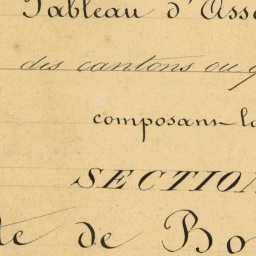 Tableau d'Ass
des cantons ou q
composans la
SECTION
de Bo